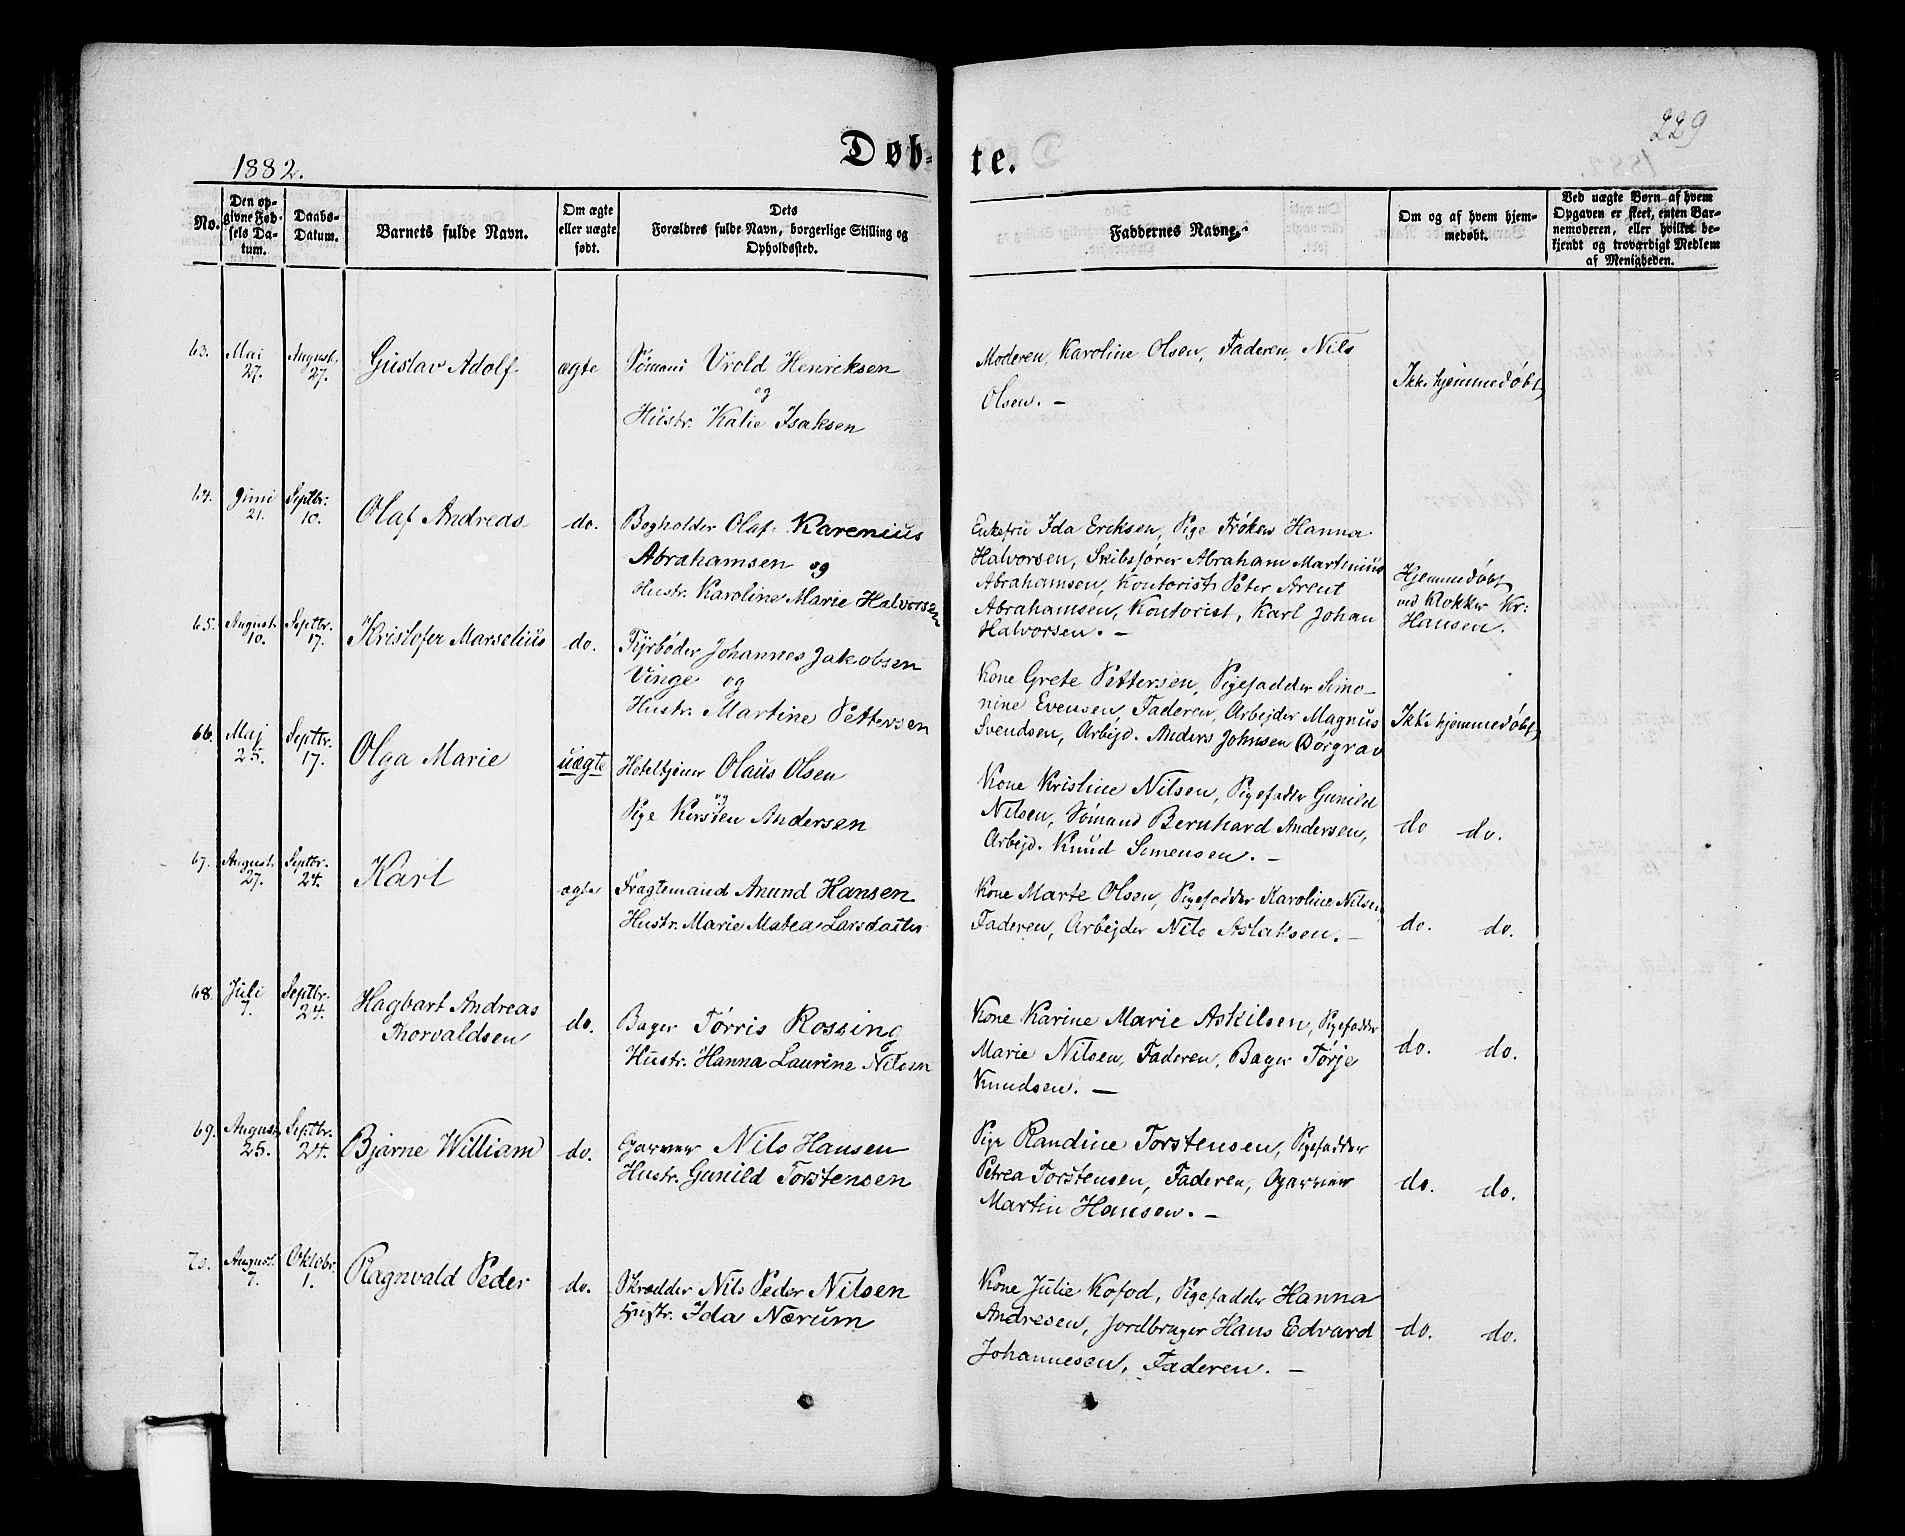 229
1882.
Døb-
te.
No.
Den op-
givne Fød-
sels Da-
tum.
Daabs-
Datum.
Barnets fulde Navn.
Om ægte
eller uægte
født.
Dets
Forældres fulde Navn, borgerlige Stilling og
Opholdssted.
Faddernes Navne.
Om og af hvem hjem-
medøbt.
Ved uægte Børn af hvem
Opgaven er skeet, enten Bar-
nemoderen, eller hvilket be-
kjendt og troværdigt Medlem
af Menigheden.
63.
Mai
27.
August
27.
Gustav Adolf
ægte
Sømand Vrold Henriksen
og
Hustr. Katie Isaksen
Moderen, Karoline Olsen, Faderen, Nils
Olsen. —
Ikke hjemmedøbt
64.
Juni
21.
Septbr.
10.
Olaf Andreas
do.
Bogholder Olaf Karenius
Abrahamsen og
Hustr. Karoline Marie Halvorsen
Enkefru Ida Ericksen, Pige Frøken Hanna
Halvorsen, Skibsfører Abraham Martinius
Abrahamsen, Kontorist Peter Arent
Abrahamsen, Kontorist, Karl Johan
Halvorsen. —
Hjemmedøbt
ved Klokker Kr:
Hansen.
65.
August
10.
Septbr.
17.
Kristofer Marselius
do.
Fyrbøder Johannes Jakobsen
Vinge og
Hustr. Martine Pettersen
Kone Grete Pettersen, Pigefadder Simo-
nine Evensen, Faderen, Arbejder Magnus
Svendsen, Arbejd. Anders Johnsen Børgrav
Ikke hjemmedøbt
66.
Maj
25.
Septbr.
17.
Olga Marie
uægte
Hoteltjener Olaus Olsen
og
Pige Kirsten Andersen
Kone Kristine Nilsen, Pigefadder Gunild
Nilsen, Sømand Bernhard Andersen,
Arbejd. Knud Simensen. —
do do.
67.
August
27.
Septbr.
24.
Karl
ægte
Fragtemand Anund Hansen
Hustr. Marie Matea Larsdatter
Kone Marte Olsen, Pigefadder Karoline Nilsen
Faderen, Arbejder Nils Aslaksen. —
do. do.
68.
Juli
7.
Septbr.
24.
Hagbart Andreas
Thorvaldsen
do.
Bager Tørris Rossing
Hustr. Hanna Laurine Nilsen
Kone Karine Marie Askilsen, Pigefadder
Marie Nilsen, Faderen, Bager Tørje
Knudsen. —
do. do.
69.
August
25.
Septbr.
24.
Bjarne William
do.
Garver Nils Hansen
Hustr. Gunild Torstensen
Pige Randine Torstensen, Pigefadder
Petrea Torstensen, Faderen, Garver
Martin Hansen. —
do. do.
70.
August
7.
Oktobr.
1.
Ragnvald Peder
do.
Skrædder Nils Peder Nilsen
Hustr. Ida Nærum
Kone Julie Kofod, Pigefadder Hanna
Andresen, Jordbruger Hans Edvard
Johannesen, Faderen. —
do. do.